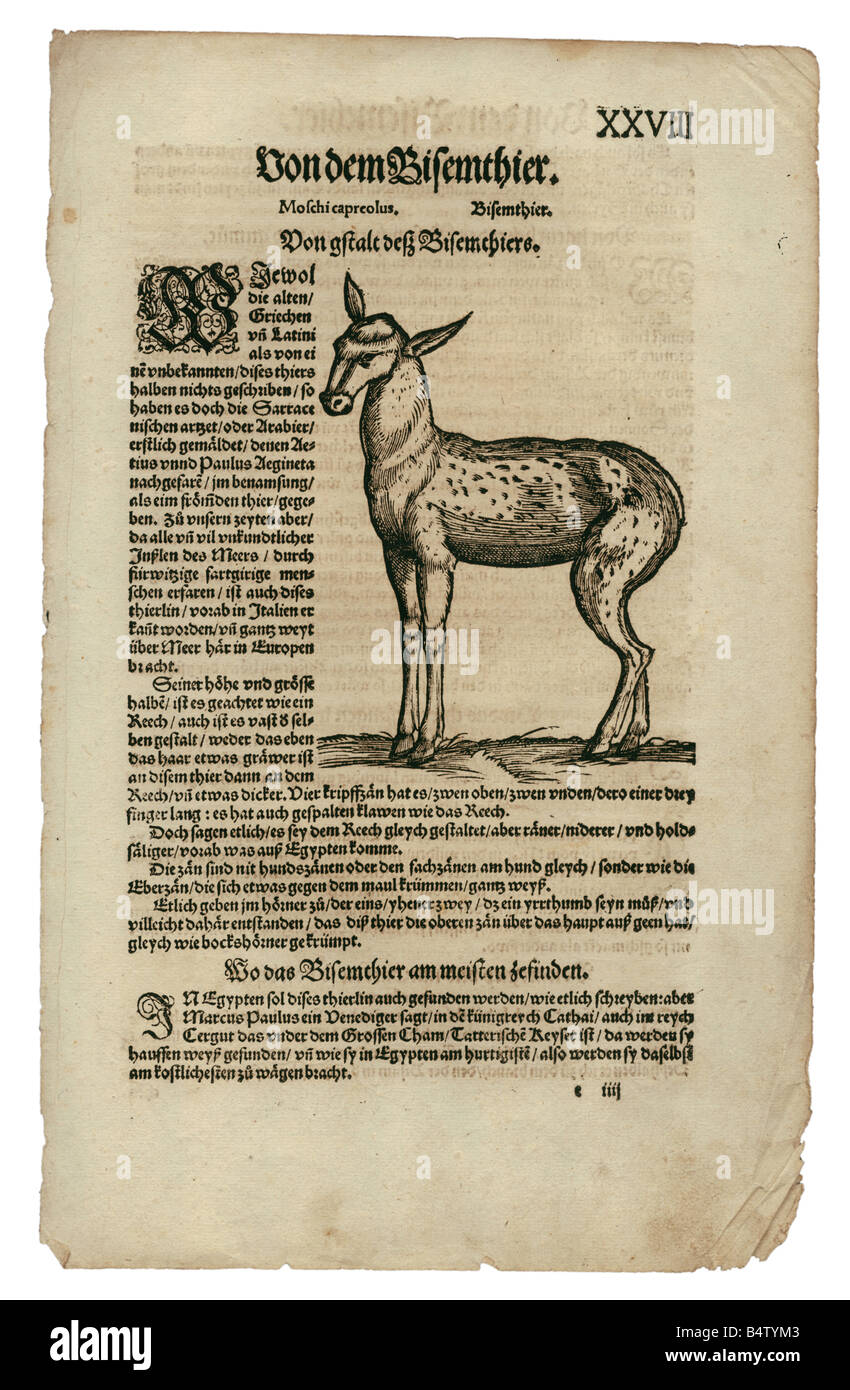 XXVIII
Von dem Bisemthier.
Moschi capreolus. Bisemthier.
Von gstalt deß Bisemthiers.
WJewol
die alten/
Griechen
vñ Latini
als von ei
nē vnbekannten/dises thiers
halben nichts geschriben/so
haben es doch die Sarrace
nischen artzet/oder Arabier/
erstlich gemäldet/denen Ae-
tius vnnd Paulus Aegineta
nachgefarē/jm benamsung/
als eim frömden thier/gege-
ben. Zů vnsern zeyten aber/
da alle vñ vil vnkundtlicher
Jnßlen des Meers/durch
fürwitzige fartgirige men-
schen erfaren/ist auch dises
thierlin/vorab in Italien er
kañt worden/vñ gantz weyt
über Meer här in Europen
bracht.
Seiner höhe vnd grösse
halbē/ist es geachtet wie ein
Reech/auch ist es vast d̕ sel-
ben gestalt/weder das eben
das haar etwas gräwer ist
an disem thier dann an dem
Reech/vñ etwas dicker. Vier kripffzän hat es/zwen oben/zwen vnden/dero einer drey
finger lang: es hat auch gespalten klawen wie das Reech.
Doch sagen etlich/es sey dem Reech gleych gestaltet/aber räner/niderer/vnd hold-
säliger/vorab was auß Egypten komme.
Die zän sind nit hundszänen oder den fachzänen am hund gleych/sonder wie die
Eberzän/die sich etwas gegen dem maul krümmen/gantz weyß.
Etlich geben jm hörner zů/der eins/yhener zwey/dz ein yrrthumb seyn můß/vnd
villeicht dahär entstanden/das diß thier die oberen zän über das haupt auß geen hat/
gleych wie bockshörner gekrümpt.
Wo das Bisemthier am meisten zefinden.
JN Egypten sol dises thierlin auch gefunden werden/wie etlich schreyben: aber
Marcus Paulus ein Venediger sagt/in dē künigreych Cathai/auch im reych
Cergut das vnder dem Grossen Cham/Tatterischē Keyser ist/da werden sy
hauffen weyß gefunden/vñ wie sy in Egypten am hurtigistē/also werden sy daselbst
am kostlichesten zů wägen bracht.
e iiij
alamy
Image ID: B4TYM3
www.alamy.com